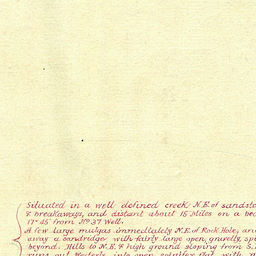 Situated in a well defined creek N.E. of sandsto
& breakaways, and distant about 15 Miles on a bea
from No 37 Well.
A few large mulgas immediately N.E. of Rock Hole, an
away a sandridge with fairly large open, gravelly, sp
beyond. Hills to N.E. & high ground sloping from S.
runs out Westerly into open spinifex flat with